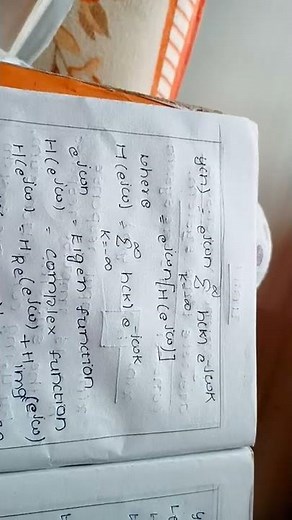 y(n) = e^jωn ∞Σk=-∞ h(k) e^-jωk
= e^jωn [H(e^jω)]
where
H(e^jω) = ∞Σk=-∞ h(k) e^-jωk
e^jωn = Eigen function
H(e^jω) = complex function
H(e^jω) = HRe(e^jω) + Himg(e^jω)